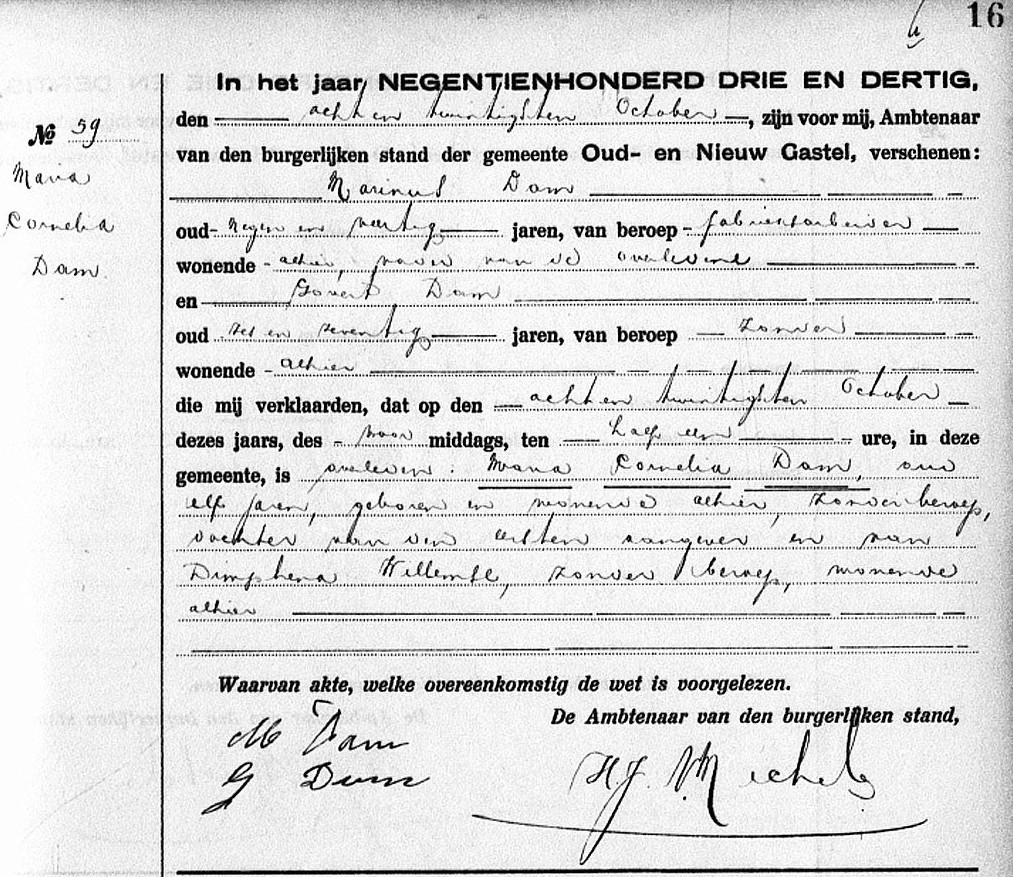 16
In het jaar NEGENTIENHONDERD DRIE EN DERTIG,
den achten twintigsten October, zijn voor mij, Ambtenaar
van den burgerlijken stand der gemeente Oud- en Nieuw Gastel, verschenen:
No 59
Maria
Cornelia
Dam.
Marinus Dam
oud negen en veertig jaren, van beroep fabrieksarbeider
wonende alhier, vader van de overledene
en Govert Dam
oud zes en zeventig jaren, van beroep zonder
wonende alhier
die mij verklaarden, dat op den acht en twintigsten October
dezes jaars, des voor middags, ten half een ure, in deze
gemeente, is overleden: Maria Cornelia Dam, oud
elf jaren, geboren en wonende alhier, zonder beroep,
dochter van den eersten aangever en van
Dimphena Willemse, zonder beroep, wonende
alhier
Waarvan akte, welke overeenkomstig de wet is voorgelezen.
De Ambtenaar van den burgerlijken stand,
M Dam
G Dam
H.J. Michels